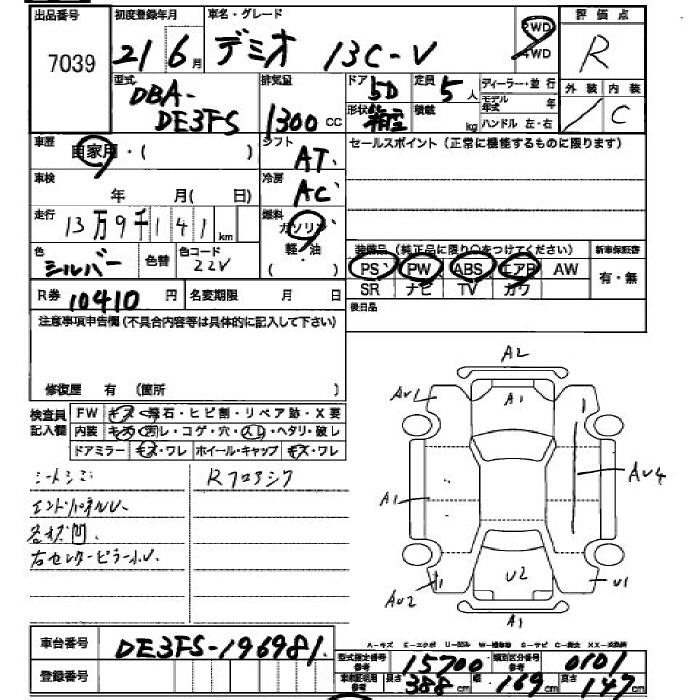 出品番号 初度登録年月 車名・グレード 評価点
7039 21 6月 デミオ 13C-V 2WD 4WD R
型式 排気量 ドア 5D 定員 5人 ディーラー・並行 外装 内装
DBA- DE3FS 1300cc 形状 箱型 積載 kg モデル年式 年 ハンドル 左・右 / C
車歴 自家用・( ) シフト AT セールスポイント(正常に機能するものに限ります)
車検 年 月( 日) 冷房 AC
走行 13万9千141km 燃料 ガソリン
色 シルバー 色替 色コード 22V 軽・油 ( ) 装備品(純正品に限り○をつけてください) 新車保証書
PS PW ABS エアB AW 有・無
R券 10410円 名変期限 月 日 SR ナビ TV カワ
注意事項申告欄(不具合内容等は具体的に記入して下さい) 後日品
修復歴 有 (箇所 )
検査員記入欄 FW キズ・飛石・ヒビ割・リペア跡・X要
内装 キズ・汚レ・コゲ・穴・スレ・ヘタリ・破レ
ドアミラー キズ・ワレ ホイール・キャップ キズ・ワレ
シートシミ Rフロアシタ
エンドパネルU
各オズ凹
右センターピラー小U
A2
AU1 A1 1
A1 AU4
AU2 1 U2 U1
A1
A-キズ E-エクボ U-凹み W-補修車 S-サビ C-腐食 XX-交換済
車台番号 DE3FS-196981 型式指定番号 参考 15700 類別区分番号 参考 0101
登録番号 車検証記載用 参考 長さ 388cm 幅 169cm 高さ 147cm